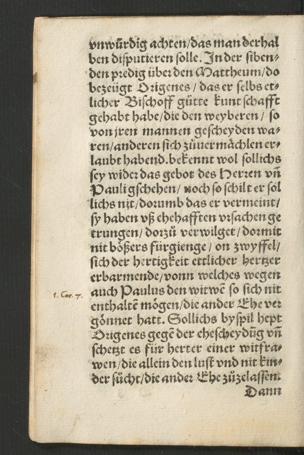 vnwürdig achten/das man derhal
ben disputieren solle. In der siben-
den predig über den Mattheum/do
bezeügt Origenes/das er selbs et-
licher Bischoff gütte kuntschafft
gehabt habe/die den weyberen/so
von jren mannen gescheyden wa-
ren/anderen sich zůuermächlen er-
laubt habend. bekennt wol sollichs
sey wider das gebot des Herren vñ
Pauli gschehen/noch so schilt er sol
lichs nit/dorumb das er vermeint/
sy haben vß ehehafften vrsachen ge
trungen/dorzů verwilget/dormit
nit bößers fürgienge/on zwyffel/
sich der hertigkeit ettlicher hertzer
erbarmende/vonn welches wegen
1. Cor. 7.
auch Paulus den witwẽ so sich nit
enthaltẽ mögen/die ander Ehe ver
gönnet hatt. Sollichs byspil hept
Origenes gegẽ der ehescheydũg vñ
schetzt es für herter einer witfra-
wen/die allein den lust vnd nit kin-
der sücht/die ander Ehe zůzelassen.
Dann